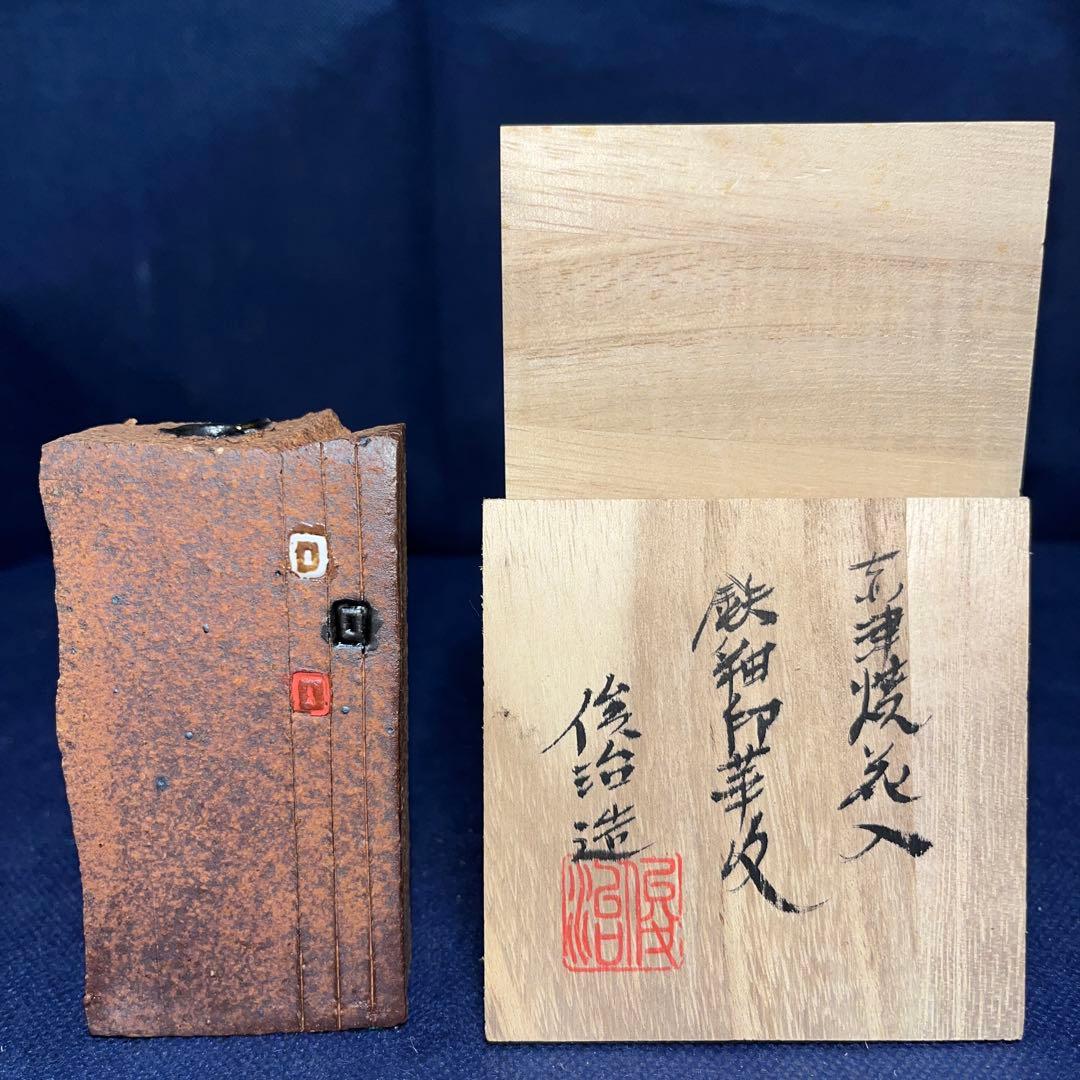 京津焼花入
鉄釉印華文
俊治造
俊治